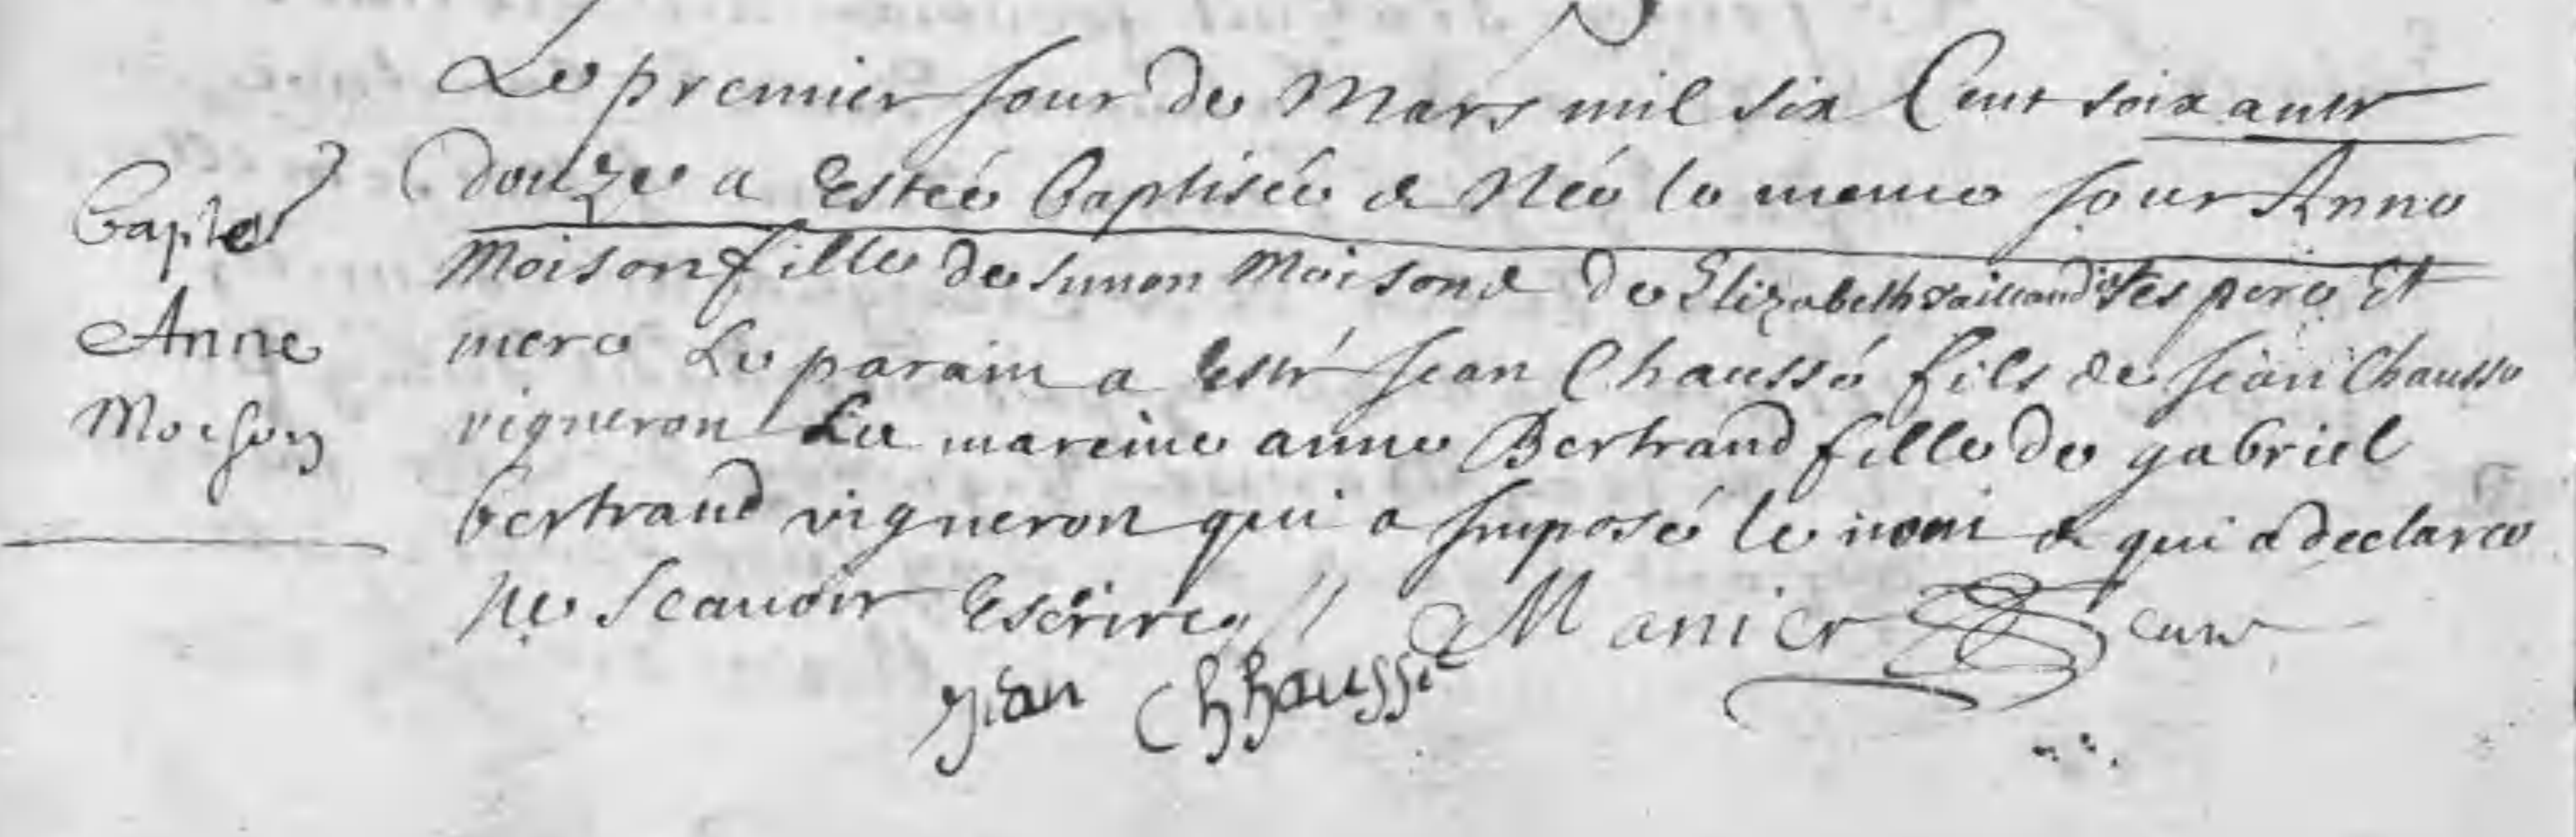 Le premier jour de Mars mil six Cent soixante
douze a Estée baptisée & Née le meme jour Anne
Moison fille de Simon Moison & de Elizabeth ses pere Et
mere Le parain a Esté Jean Chaussé fils de Jean Chausse
vigneron La mareine anne Bertrand fille de gabriel
bertrand vigneron qui a jmposé le nom & qui a declaree
ne Scauoir Escrire
Manier cure
jean Chhaussé
bapte
Anne
Moison